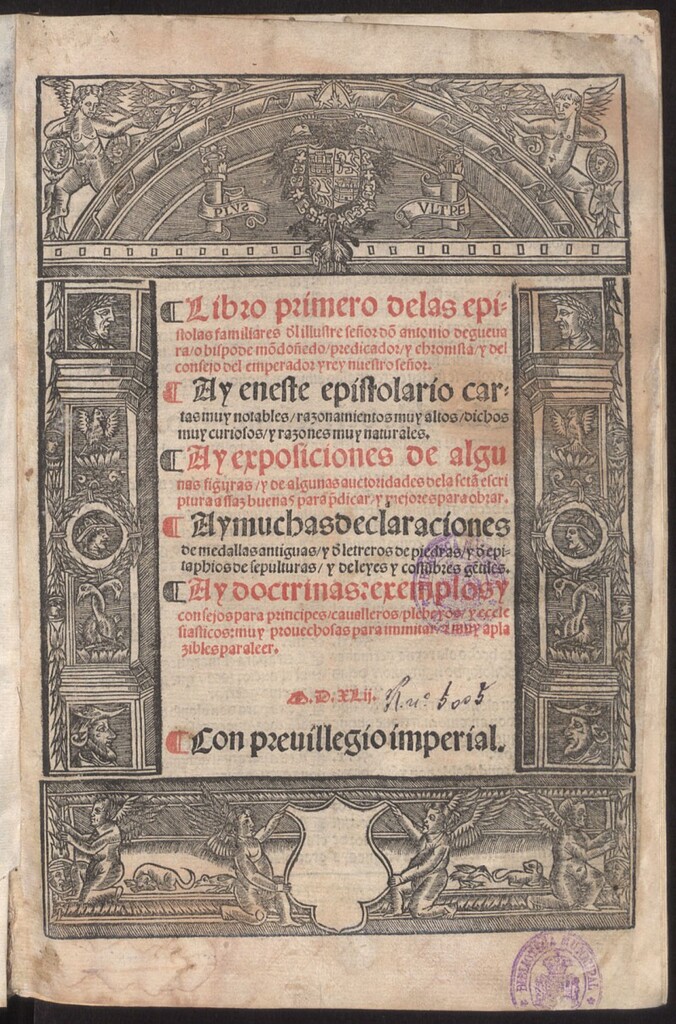 PLVS VLTRE
Libro primero delas epi-
stolas familiares dl illustre señor dō antonio de gueua
ra/obispo de mōdoñedo/predicador/y chronista/y del
consejo del emperador y rey nuestro señor.
Ay eneste epistolario car-
tas muy notables/razonamientos muy altos/dichos
muy curiosos/y razones muy naturales.
Ay exposiciones de algu
nas figuras/y de algunas auctoridades dela sctā escri
ptura assaz buenas para pdicar/y mejores para obrar.
Ay muchas declaraciones
de medallas antiguas/y d letreros de piedras/y d epi-
taphios de sepulturas/y de leyes y costūbres gētiles.
Ay doctrinas: exemplos y
consejos para principes/caualleros/plebeyos/y eccle
siasticos: muy prouechosas para immitar/ muy apla
zibles para leer.
M.D.XLij. R. nº 5005
Con preuillegio imperial.
BIBLIOTECA MUNICIPAL